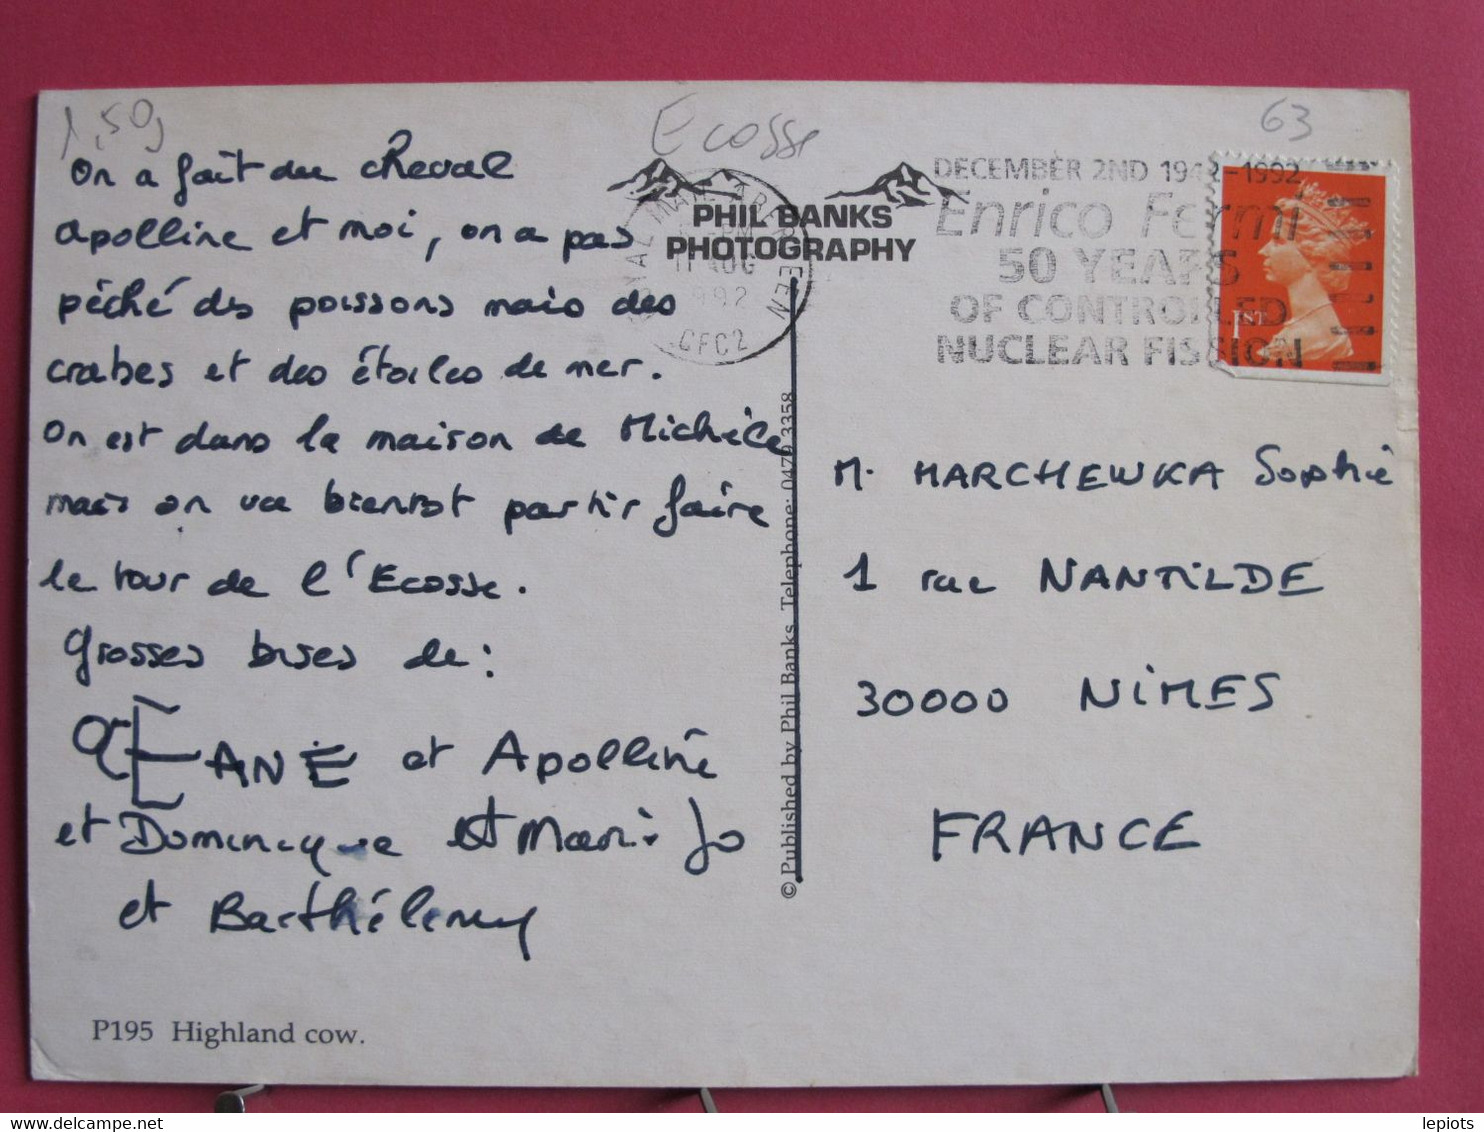 1,50
Ecosse
63
On a fait du cheval
apolline et moi, on a pas
pêché des poissons mais des
crabes et des étoiles de mer.
On est dans la maison de Michèle
mais on va bientot partir faire
le tour de l'Ecosse.
grosses bises de:
et Apolline
et Dominique et Marie Jo
et Barthélemy
P195 Highland cow.
PHIL BANKS
PHOTOGRAPHY
ROYAL MAIL ABERDEEN
PM
11 AUG
1992
GFC2
DECEMBER 2ND 1942-1992
Enrico Fermi
50 YEARS
OF CONTROLLED
NUCLEAR FISSION
1ST
© Published by Phil Banks. Telephone: 0479 3358
M. MARCHEWKA Sophie
1 rue NANTILDE
30000 NIMES
FRANCE
lepiots